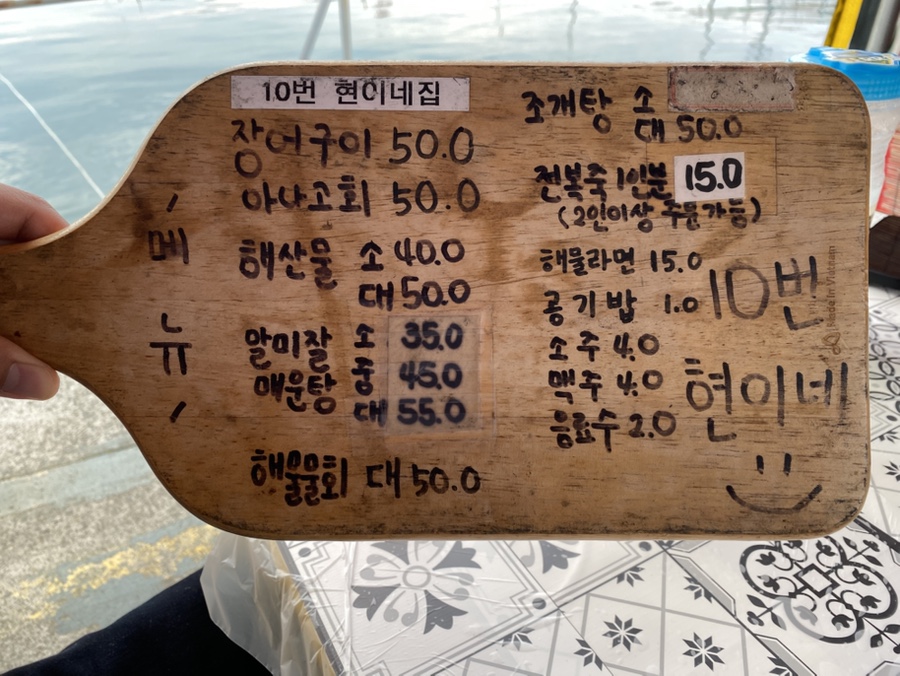 10번 현이네집
메
뉴
장어구이 50.0
아나고회 50.0
해산물 소 40.0
대 50.0
말미잘 소 35.0
매운탕 중 45.0
대 55.0
해물물회 대 50.0
조개탕 소
대 50.0
전복죽 1인분 15.0
(2인이상 주문가능)
해물라면 15.0
공기밥 1.0
소주 4.0
맥주 4.0
음료수 2.0
10번
현이네
Made in Vietnam